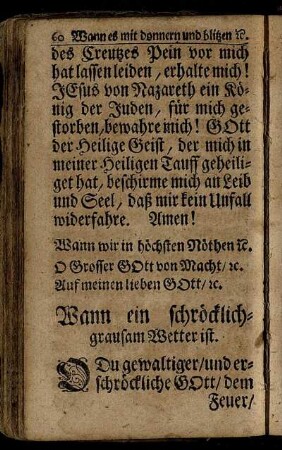 60 Wann es mit donnern und blitzen ꝛc.
des Creutzes Pein vor mich
hat lassen leiden, erhalte mich!
JEsus von Nazareth ein Kö-
nig der Juden, für mich ge-
storben, bewahre mich! GOtt
der Heilige Geist, der mich in
meiner Heiligen Tauff geheili-
get hat, beschirme mich an Leib
und Seel, daß mir kein Unfall
widerfahre. Amen!
Wann wir in höchsten Nöthen ꝛc.
O Grosser GOtt von Macht/ ꝛc.
Auf meinen lieben GOtt/ ꝛc.
Wann ein schröcklich-
grausam Wetter ist.
DU gewaltiger/ und er-
schröckliche GOtt/ dem
Feuer/